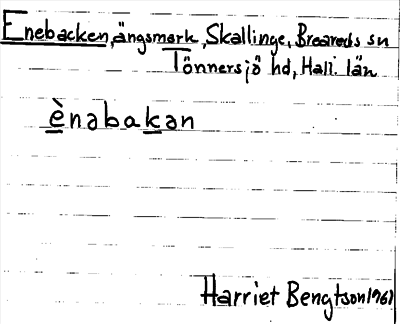 Enebacken, ängsmark, Skallinge, Breareds sn
Tönnersjö hd, Hall. län
ènabakan
Harriet Bengtson 1961